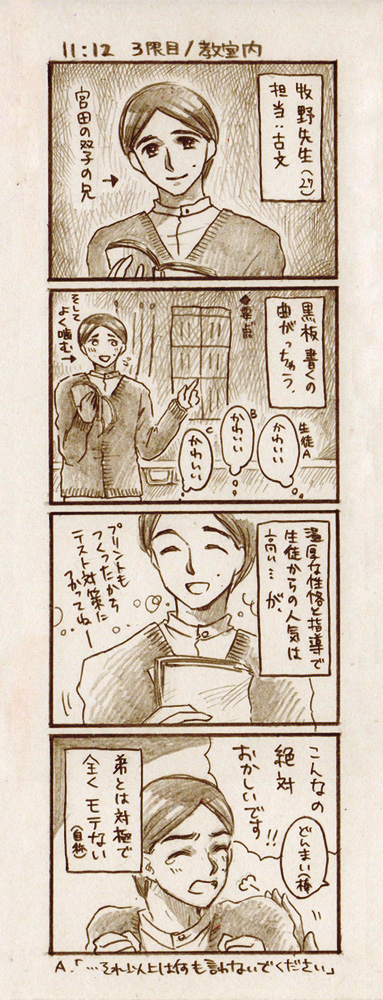 11:12 3限目/教室内
牧野先生(27)
担当:古文
宮田の双子の兄
黒板書くの
曲がっちゃう。
そして
よく噛む
要点
生徒A
かわいい
B
かわいい
C
かわいい
温厚な性格と指導で
生徒からの人気は
高い…が
プリントも
つくったから
テスト対策に
つかってねー
こんなの
絶対
おかしいです!!
どんまい(棒
弟とは対極で
全くモテない
(自称)
A.「…それ以上は何も言わないでください」